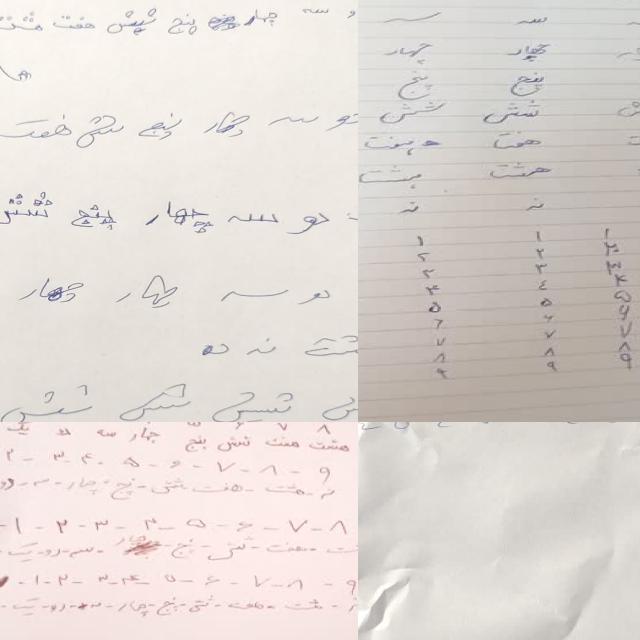 سه چهار پنج شیش هفت هشت
دو سه چهار پنج شش هفت
دو سه چهار پنج شش
دو سه چهار چهار
نه ده
شیش شش شش
سه سه
چهار چهار
پنج پنج
شش شش
هفت هفت
هشت هشت
نه نه
۱ ۱ ۱
۲ ۲ ۲
۳ ۳ ۳
۴ ۴ ۴
۵ ۵ ۵
۶ ۶ ۶
۷ ۷ ۷
۸ ۸ ۸
۹ ۹ ۹
هشت هفت شش پنج چهار سه دو یک
۲ - ۳ - ۴ - ۵ - ۶ - ۷ - ۸ - ۹
نه - هشت - هفت - شش - پنج - چهار - سه - دو
۱ - ۲ - ۳ - ۴ - ۵ - ۶ - ۷ - ۸
هفت - شش - پنج - چهار - سه - دو - یک
۱ - ۲ - ۳ - ۴ - ۵ - ۶ - ۷ - ۸ - ۹
هشت - هفت - شش - پنج - چهار - سه - دو - یک